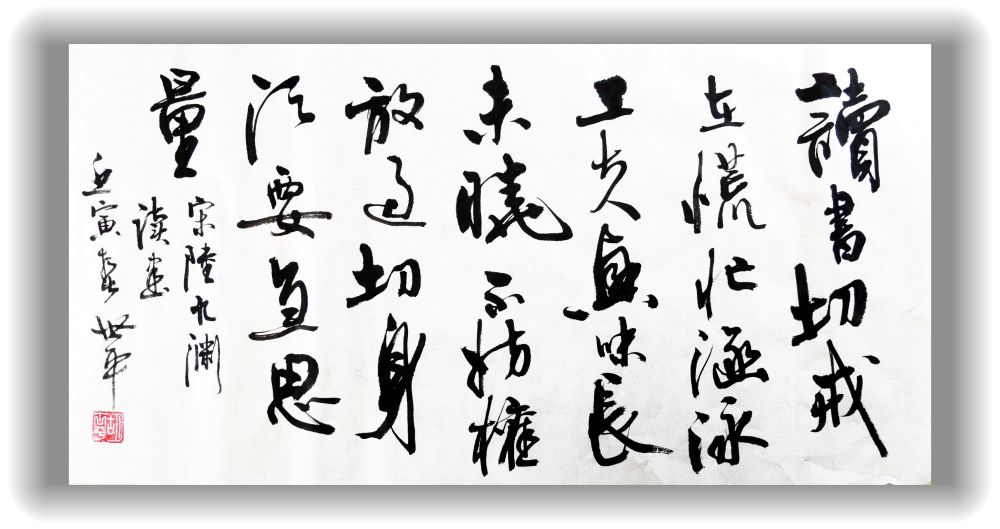 讀書切戒
在慌忙涵泳
工夫興味長
未曉不妨權
放過切身
須要急思
量
宋陸九淵
读書
壬寅春世